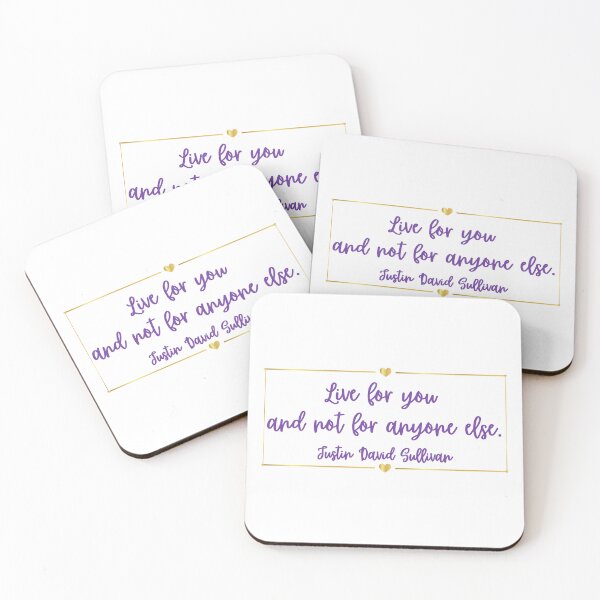 Live for you
and not anyone
Live for you
and not for anyone else.
Justin David Sullivan
Live for you
and not for anyone else.
Justin David
Live for you
and not for anyone else.
Justin David Sullivan